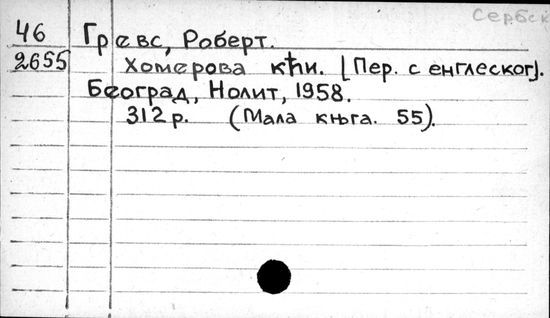 Сербск
46 Гревс, Роберт.
2655 Хомерова кћи. [Пер. с енглеског].
Београд, Нолит, 1958.
312 р. (Мала књга. 55).